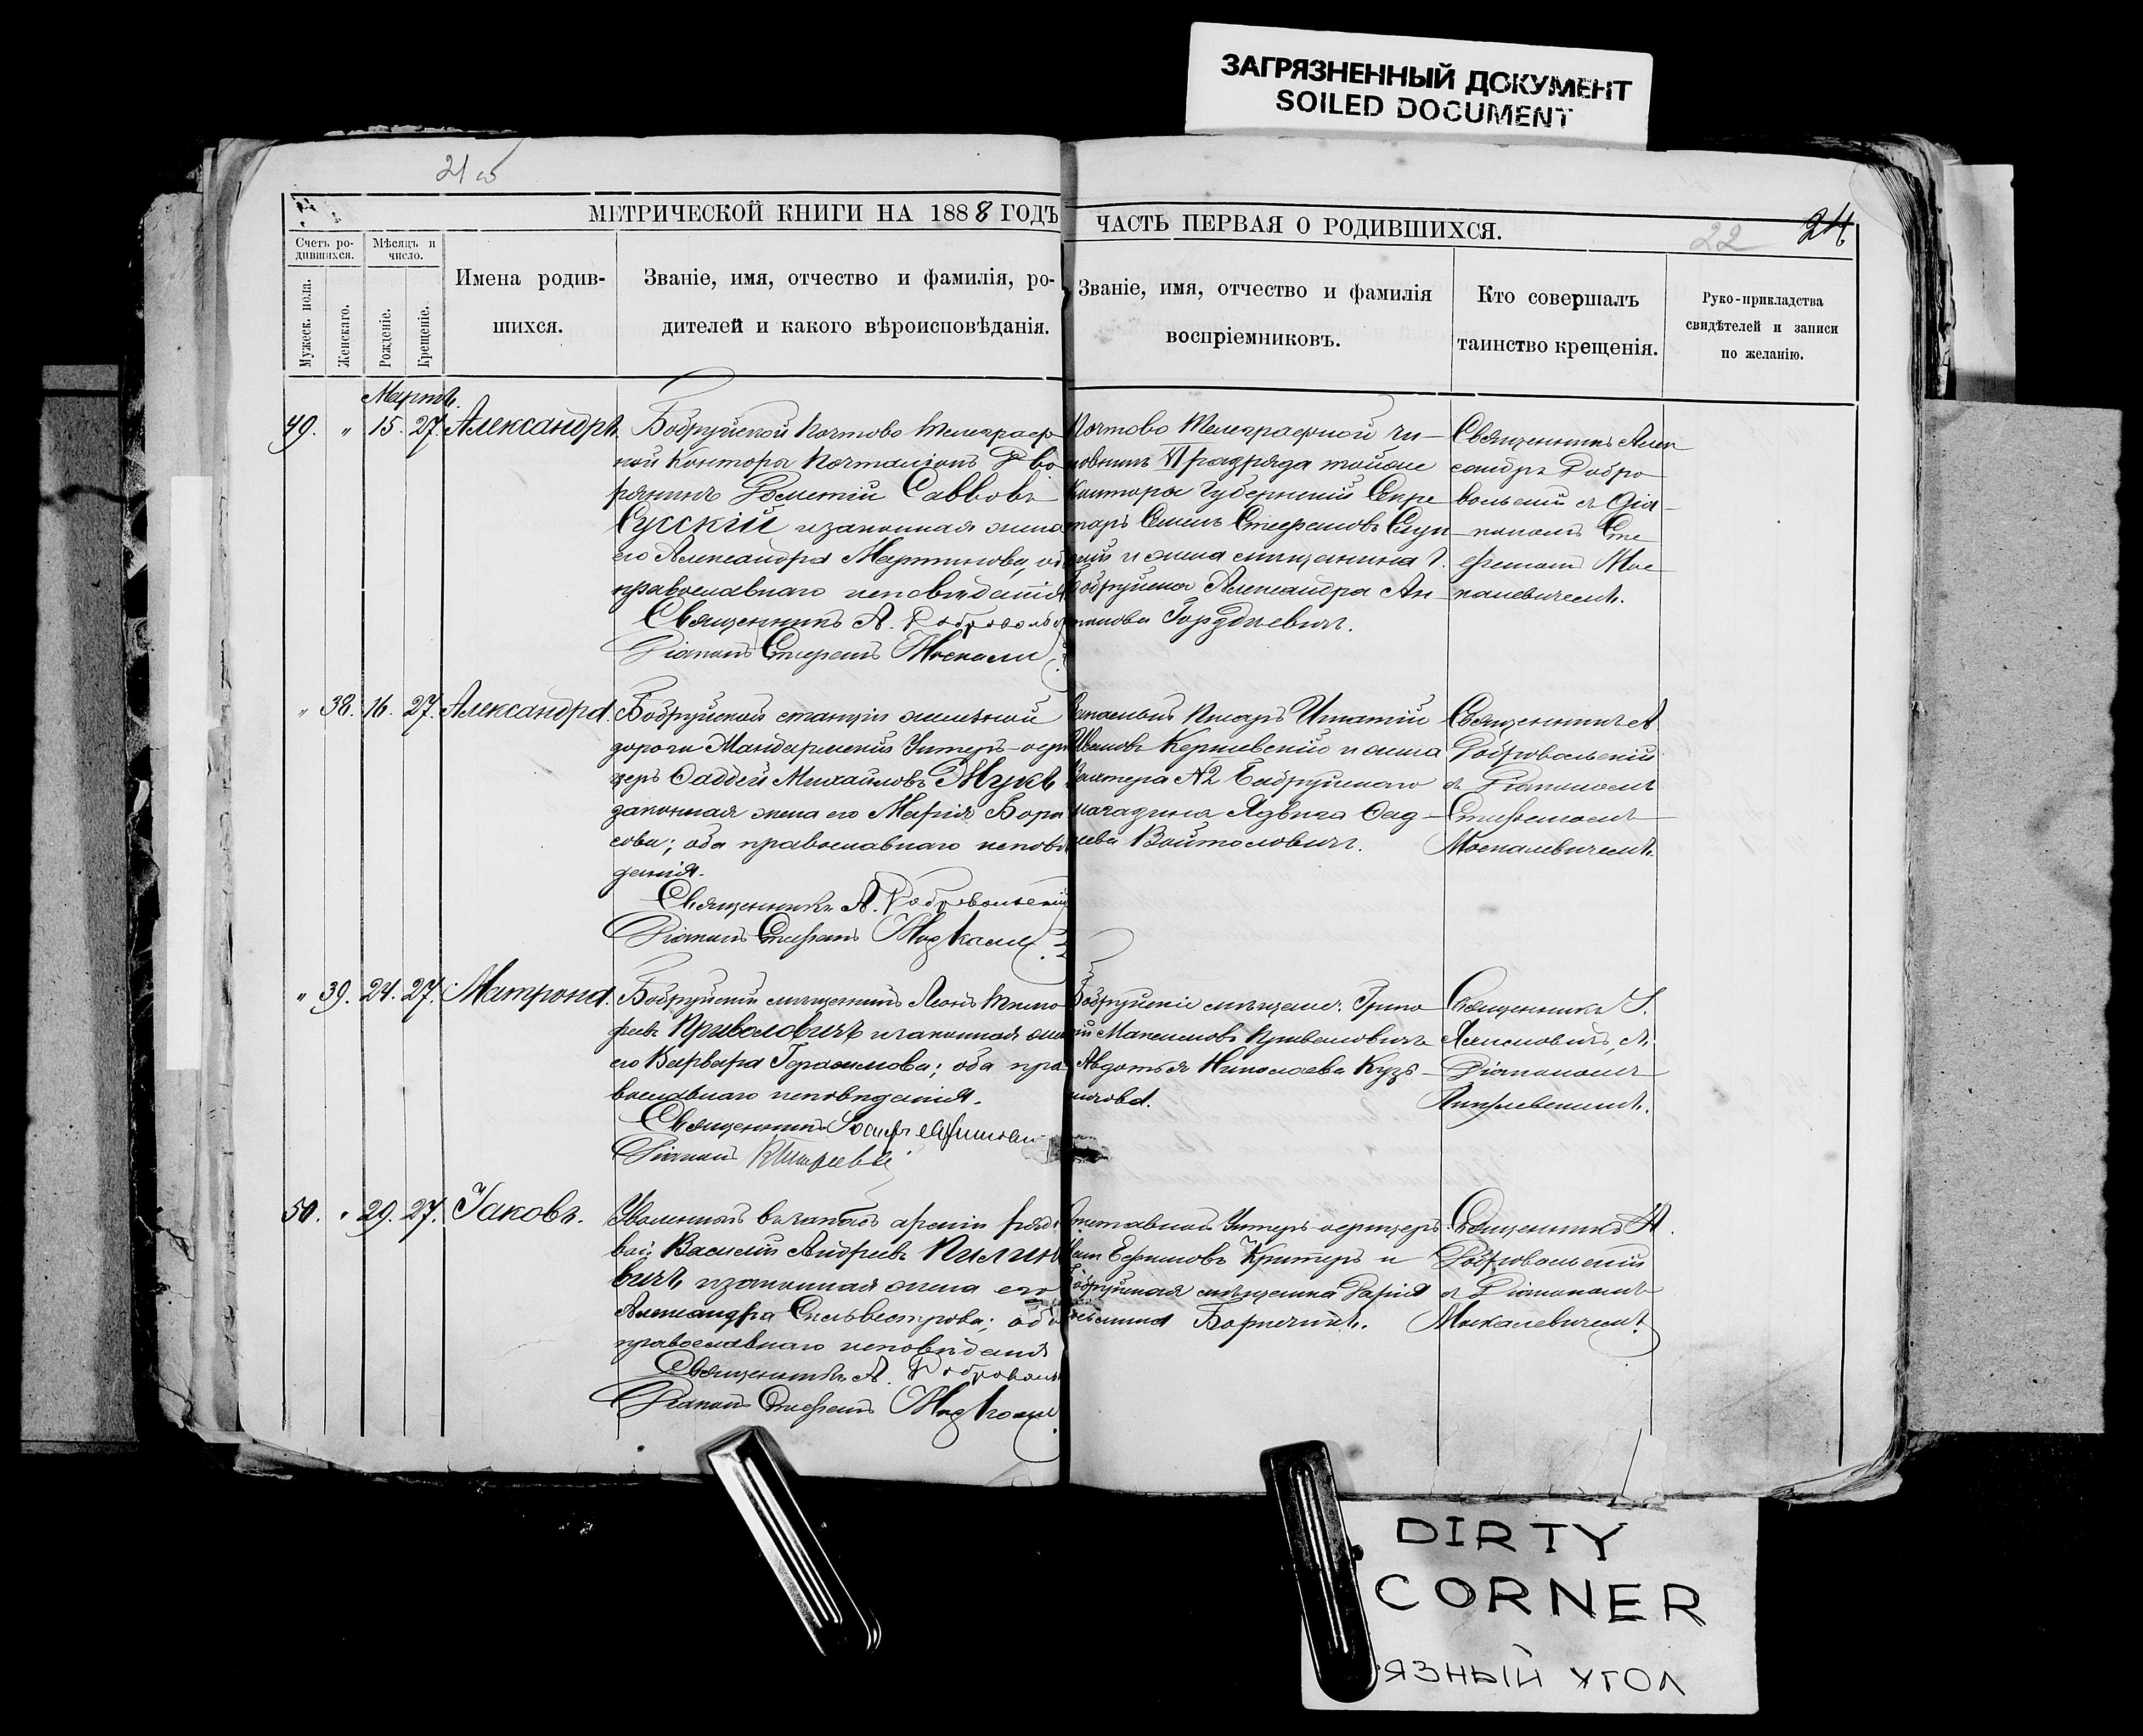 ЗАГРЯЗНЕННЫЙ ДОКУМЕНТ
SOILED DOCUMENT
МЕТРИЧЕСКОЙ КНИГИ НА 1888 ГОДЪ
ЧАСТЬ ПЕРВАЯ О РОДИВШИХСЯ.
22
24
Счетъ ро-
дившихся.
Мѣсяцъ и
число.
Мужеск. пола.
Женскаго.
Рожденіе.
Крещеніе.
Имена родив-
шихся.
Званіе, имя, отчество и фамилія, ро-
дителей и какого вѣроисповѣданія.
Званіе, имя, отчество и фамилія
воспріемниковъ.
Кто совершалъ
таинство крещенія.
Руко-прикладства
свидѣтелей и записи
по желанію.
Мартъ.
49. " 15. 27. Александръ.
Бобруйской Почтово Телеграф
ной Конторы Почталіонъ Дво
рянинъ Саввовъ
Сусскій и законная жена
его Александра Мартинова, об
православнаго исповѣданія
Священникъ А. Добровольс
Діаконъ Стефанъ Москале
Почтово Телеграфной чи-
новникъ VI разряда тойже
Конторы Губернскій Секре
тарь Стефановъ
и жена мѣщанина г.
Бобруйска Александра Ан-
тонова
Священникъ Алек
сандръ Добро
вольскій съ Діа-
кономъ Сте
фаномъ Мос
калевичемъ.
" 38. 16. 27. Александра.
Бобруйской станціи желѣзной
дороги Жандармскій Унтеръ-офи
церъ Фаддей Михайловъ Жукъ
законная жена его Марія Бори
сова; оба православнаго исповѣ
данія.
Священникъ А. Добровольскій
Діаконъ Стефанъ Москале
Писарь Игнатій
Ивановъ и жена
№2 Бобруйскаго
магазина Ядвига Фад-
деева Войтоловичъ.
Священникъ А.
Добровольскій
съ Діакономъ
Стефаномъ
Москалевичемъ.
" 39. 24. 27. Матрона.
Бобруйскій мѣщанинъ Леонъ Тимо
феевъ Приваловичъ и законная жен
его Варвара Герасимова; оба пра
вославнаго исповѣданія.
Священникъ Іосифъ
Діаконъ
Бобруйскіе мѣщане: Григо
рій Максимовъ Приваловичъ
Авдотья Николаева Кузь-
мичова.
Священникъ І.
съ
Діакономъ
50. " 20. 27. Іаковъ.
Уволенный въ запасъ арміи рядо
вой Василій Андреевъ Пилин
вичъ и законная жена его
Александра Сильвестрова; оба
православнаго исповѣданія
Священникъ А. Доброволь
Діаконъ Стефанъ Москале
Отставной Унтеръ-офицеръ
Ефимовъ и
Бобруйская мѣщанка Дарія
Священникъ А.
Добровольскій
съ Діакономъ
Москалевичемъ.
DIRTY
CORNER
ЯЗНЫЙ УГОЛ